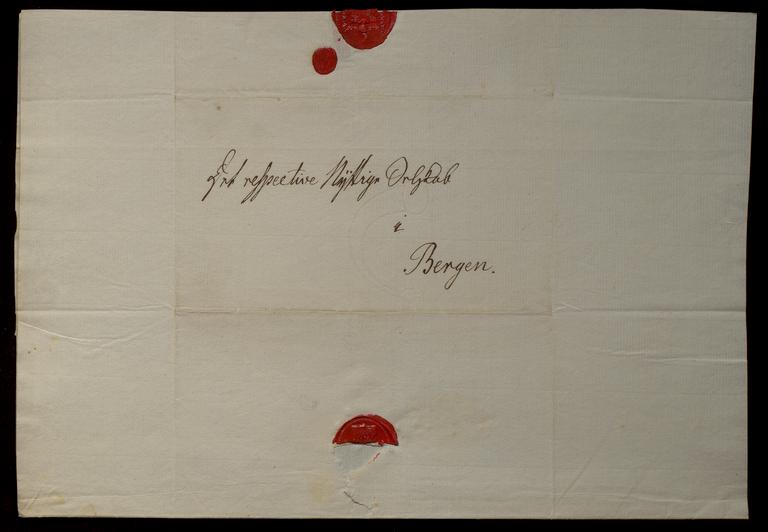 Det respective Nÿttige Selskab
i
Bergen.